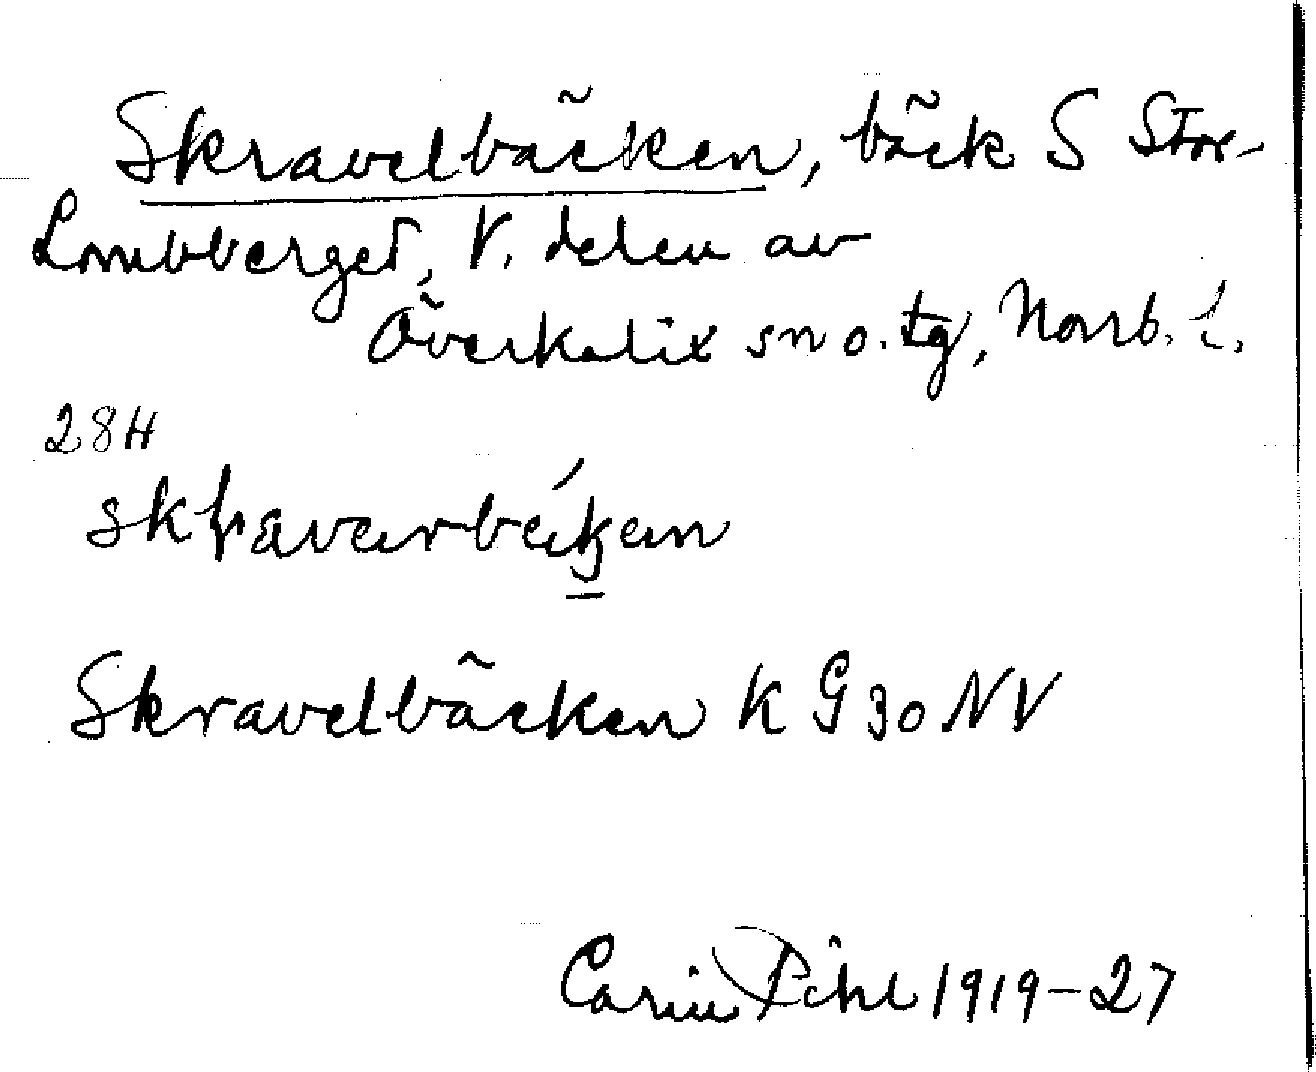 Skravelbäcken, bäck S Stor-
Lombberget, V. delen av
Överkalix sn o. tg, Norrb. l.
28H
Skravelbäcken K G 30 NV
Carin Pihl 1919-27